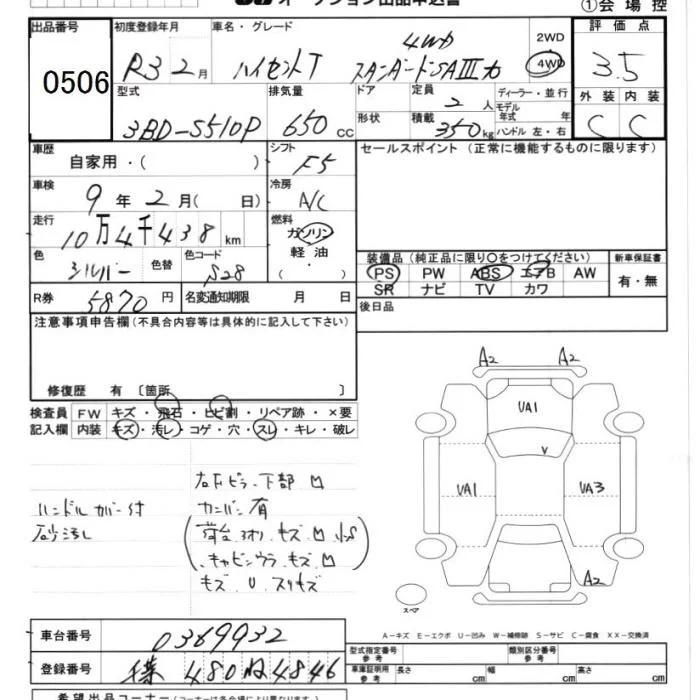 ①会場控
出品番号 初度登録年月 車名・グレード 評価点
0506 R3 2月 ハイゼットT 4WD スタンダードSAⅢt 2WD 4WD 3.5
型式 排気量 ドア 定員 2人 ディーラー・並行 外装 内装
3BD-S510P 650cc 形状 積載 350kg モデル年式 年 ハンドル 左・右 C C
車歴 自家用・( ) シフト F5 セールスポイント (正常に機能するものに限ります)
車検 9年2月( 日) 冷房 A/C
走行 10万4千438km 燃料 ガソリン 軽油 ・( )
色 シルバー 色替 色コード S28 装備品(純正品に限り○をつけてください) 新車保証書
PS PW ABS エアB AW 有・無
SR ナビ TV カワ
R券 5870円 名変通知期限 月 日 後日品
注意事項申告欄(不具合内容等は具体的に記入して下さい)
修復歴 有 〔箇所 〕
検査員 FW キズ・飛石・ヒビ割・リペア跡・×要
記入欄 内装 キズ・汚レ・コゲ・穴・スレ・キレ・破レ
A2 A2
UA1
V
UA1 UA3
A2
スペア
右下ピラー下部 凹
ハンドルカバー付 カンバン有
砂汚レ
・キャビンウラ、キズ、凹
キズ U スリキズ
A-キズ E-エクボ U-凹み W-補修跡 S-サビ C-腐食 XX-交換済
車台番号 0369932 型式指定番号 参考 類別区分番号 参考
登録番号 480 4846 車庫証明用 参考 長さ cm 幅 cm 高さ cm
希望出品コーナー(コーナーは各会場により異なります)